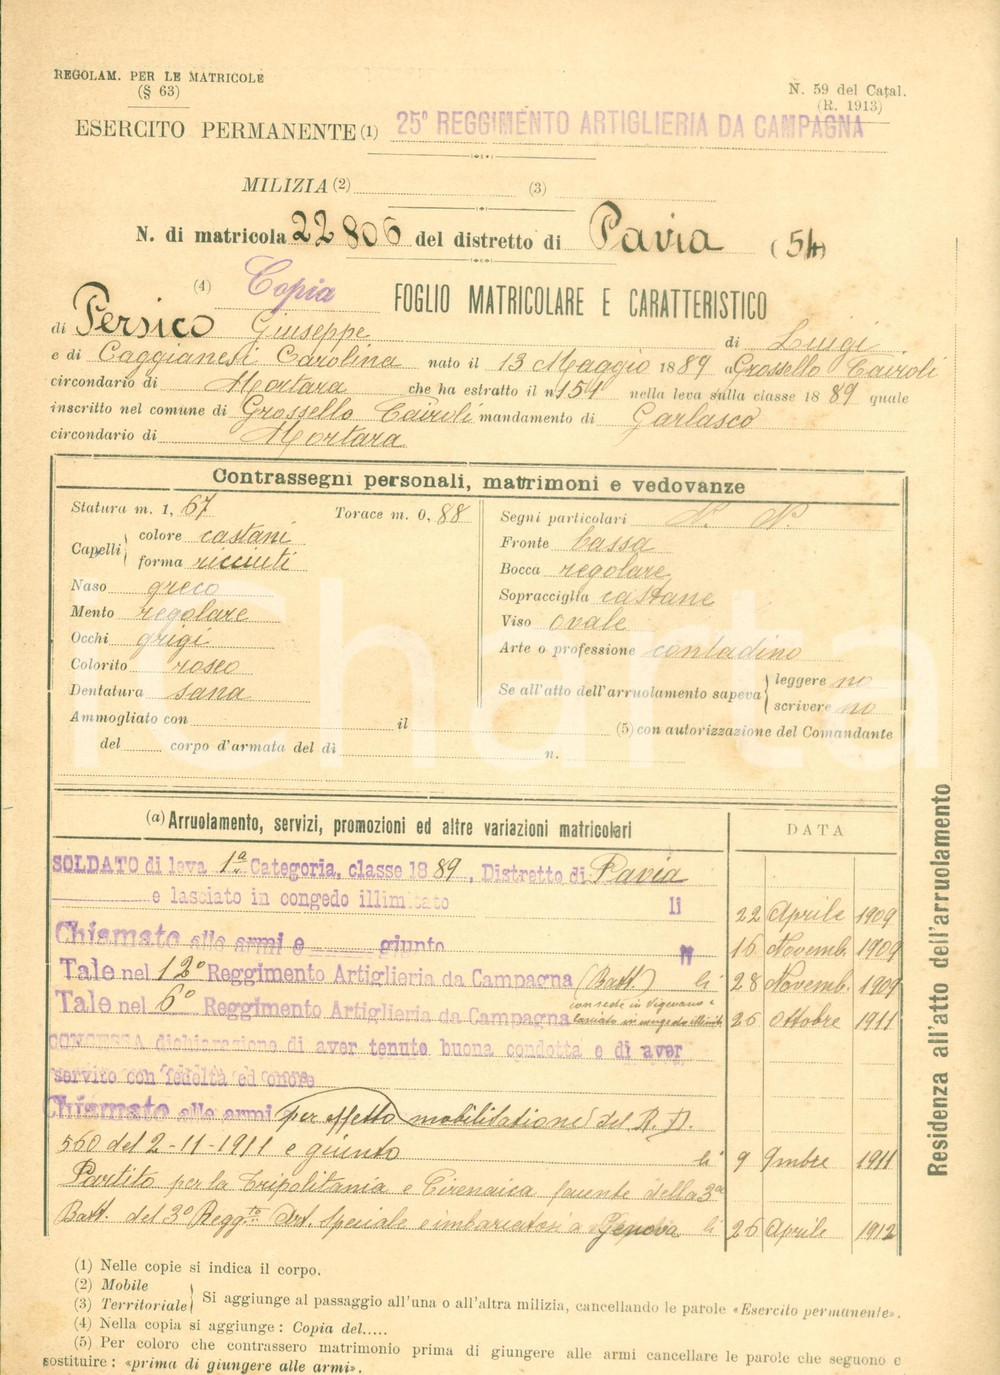 REGOLAM. PER LE MATRICOLE
(§ 63)
N. 59 del Catal.
(R. 1913)
ESERCITO PERMANENTE (1) 25° REGGIMENTO ARTIGLIERIA DA CAMPAGNA
MILIZIA (2) (3)
N. di matricola 22806 del distretto di Pavia (54)
(4) Copia FOGLIO MATRICOLARE E CARATTERISTICO
di Persico Giuseppe di Luigi
e di Caggianesi Carolina nato il 13 Maggio 1889 a Grossello Cairoli
circondario di Mortara che ha estratto il n 154 nella leva sulla classe 1889 quale
inscritto nel comune di Grossello Cairoli mandamento di Garlasco
circondario di Mortara
Contrassegni personali, matrimoni e vedovanze
Statura m. 1, 67 Torace m. 0, 88
Capelli colore castani
forma ricciuti
Naso greco
Mento regolare
Occhi grigi
Colorito roseo
Dentatura sana
Segni particolari N. N.
Fronte bassa
Bocca regolare
Sopracciglia castane
Viso ovale
Arte o professione contadino
Se all'atto dell'arruolamento sapeva leggere no
scrivere no
Ammogliato con il (5) con autorizzazione del Comandante
del corpo d'armata del dì n.
(a) Arruolamento, servizi, promozioni ed altre variazioni matricolari DATA
SOLDATO di leva 1a Categoria, classe 1889, Distretto di Pavia
e lasciato in congedo illimitato li 22 Aprile 1909
Chiamato alle armi e giunto 16 Novemb. 1909
Tale nel 12° Reggimento Artiglieria da Campagna (Batt.) li 28 Novemb. 1909
Tale nel 6° Reggimento Artiglieria da Campagna con sede in Vigevano e
lasciato in congedo illimit 26 Ottobre 1911
CONCESSA dichiarazione di aver tenuto buona condotta e di aver
servito con fedeltà ed onore
Chiamato alle armi per effetto mobilitazione del R. D.
560 del 2-11-1911 e giunto li 9 9mbre 1911
Partito per la Tripolitania e Cirenaica facente della 3a
Batt. del 3° Regg.to Art. speciale e imbarcatosi a Genova li 26 Aprile 1912
Residenza all'atto dell'arruolamento
(1) Nelle copie si indica il corpo.
(2) Mobile
(3) Territoriale Si aggiunge al passaggio all'una o all'altra milizia, cancellando le parole «Esercito permanente».
(4) Nella copia si aggiunge: Copia del.....
(5) Per coloro che contrassero matrimonio prima di giungere alle armi cancellare le parole che seguono e
sostituire: «prima di giungere alle armi».
Charta